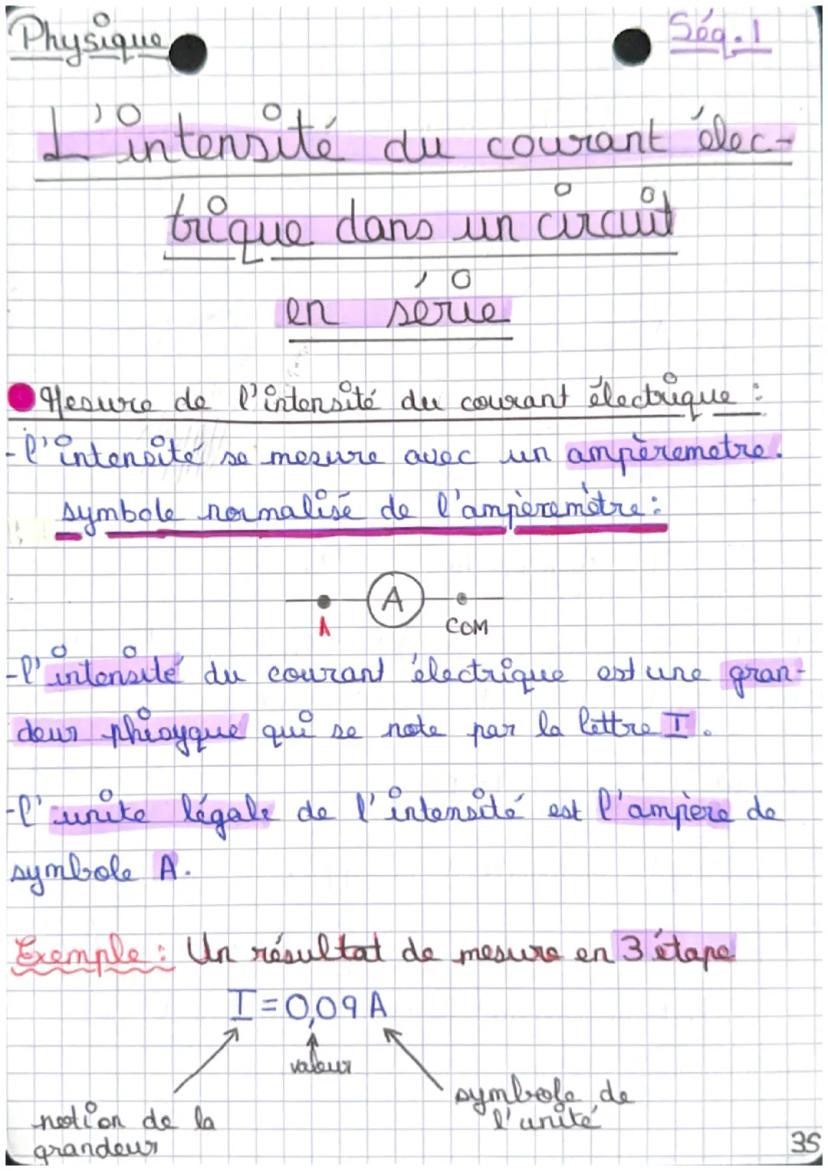 Physique
Séq. 1
L'intensité du courant élec-
trique dans un circuit
en série
Mesure de l'intensité du courant électrique :
- l'intensité se mesure avec un ampèremetre.
symbole normalisé de l'ampèremètre :
A
A COM
- l'intensité du courant électrique est une gran-
deur phisyque qui se note par la lettre I.
- l'unite légale de l'intensité est l'ampère de
symbole A.
Exemple : Un résultat de mesure en 3 étape
I = 0,09 A
valeur
notion de la
grandeur
symbole de
l'unité
35